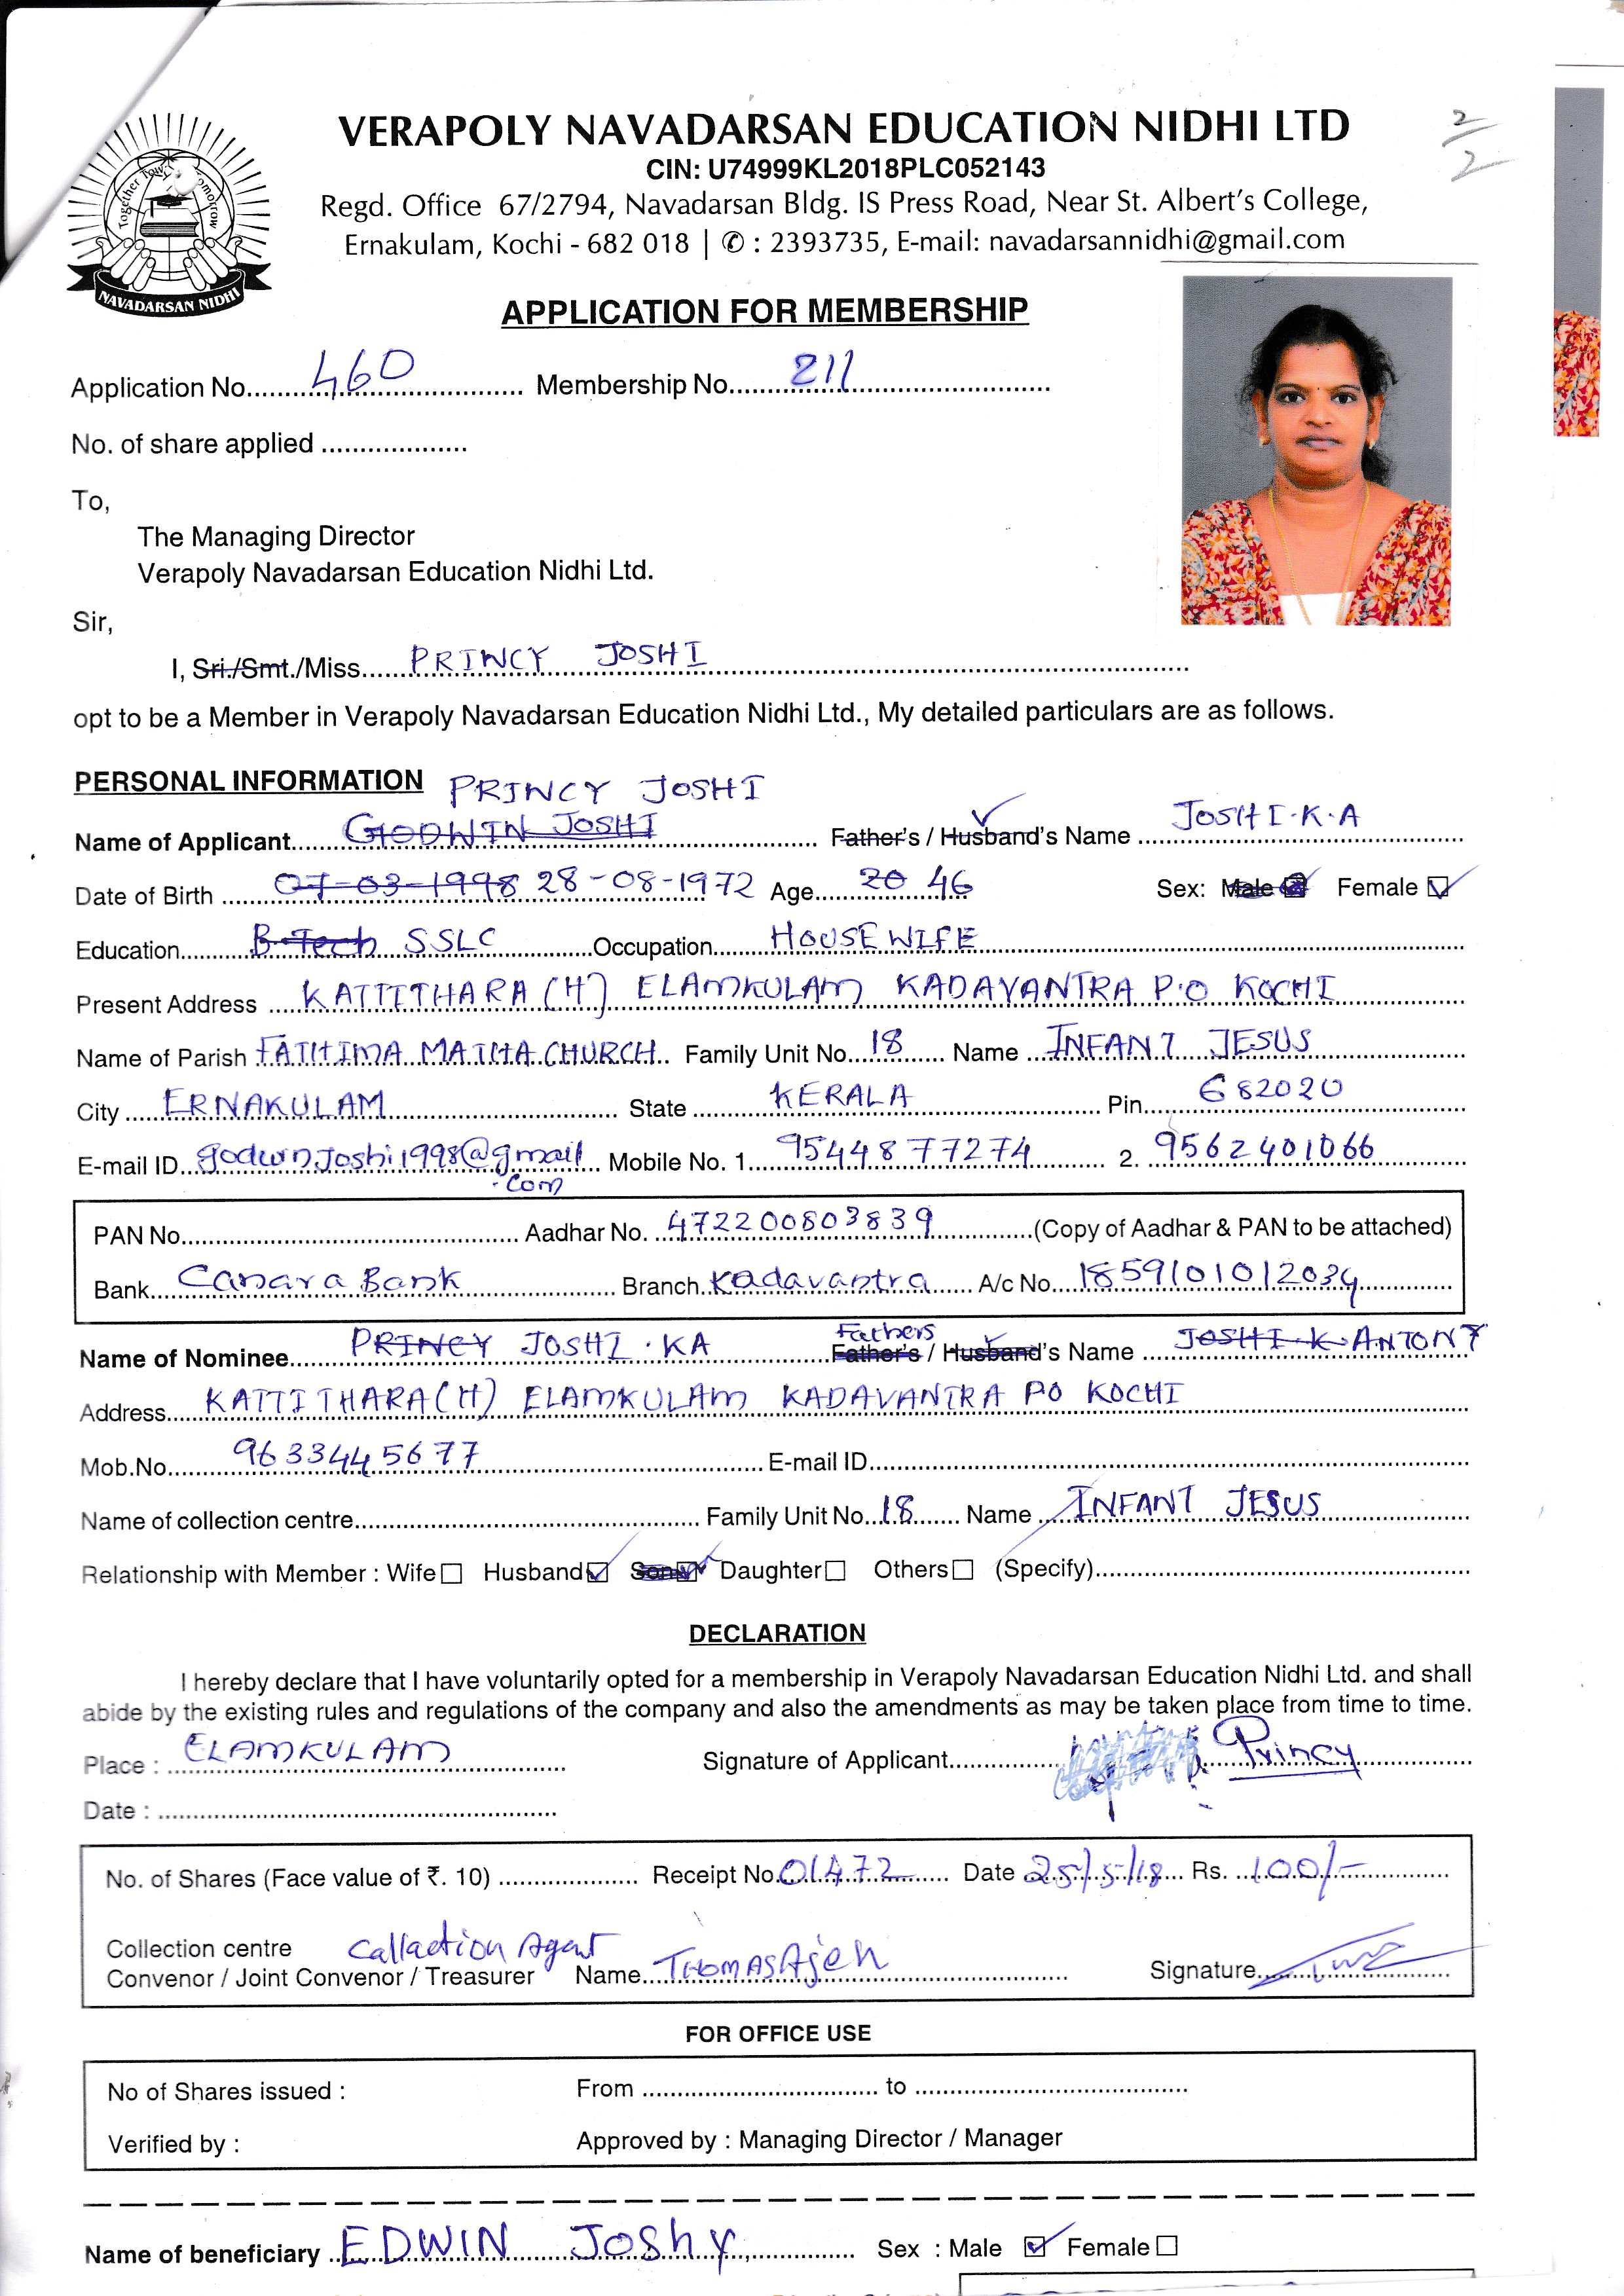 VERAPOLY NAVADARSAN EDUCATION NIDHI LTD
CIN: U74999KL2018PLC052143
Regd. Office 67/2794, Navadarsan Bldg. IS Press Road, Near St. Albert's College,
Ernakulam, Kochi - 682 018 | ✆ : 2393735, E-mail: navadarsannidhi@gmail.com
2/2
Together Tow Tomorrow
NAVADARSAN NIDHI
APPLICATION FOR MEMBERSHIP
Application No. 460 Membership No. 211
No. of share applied
To,
The Managing Director
Verapoly Navadarsan Education Nidhi Ltd.
Sir,
I, Sri./Smt./Miss PRINCY JOSHI
opt to be a Member in Verapoly Navadarsan Education Nidhi Ltd., My detailed particulars are as follows.
PERSONAL INFORMATION PRINCY JOSHI
Name of Applicant GODWIN JOSHI Father's / Husband's Name JOSHI.K.A
Date of Birth 07-03-1998 28-08-1972 Age 20 46 Sex: Male Female
Education B-Tech SSLC Occupation HOUSE WIFE
Present Address KATTITHARA (H) ELAMKULAM KADAVANTRA P.O KOCHI
Name of Parish FATHIMA MATHA CHURCH Family Unit No. 18 Name INFANT JESUS
City ERNAKULAM State KERALA Pin 682020
E-mail ID godwnjoshi1998@gmail Mobile No. 1. 9544877274 2. 9562401066
.com
PAN No. Aadhar No. 472200803839 (Copy of Aadhar & PAN to be attached)
Bank Canara Bank Branch Kadavantra A/c No. 1859101012034
Fathers
Name of Nominee PRINCY JOSHI.KA Father's / Husband's Name JOSHI.K ANTONY
Address KATTITHARA(H) ELAMKULAM KADAVANTRA PO KOCHI
Mob.No. 9633445677 E-mail ID
Name of collection centre Family Unit No. 18 Name INFANT JESUS
Relationship with Member : Wife Husband Son Daughter Others (Specify)
DECLARATION
I hereby declare that I have voluntarily opted for a membership in Verapoly Navadarsan Education Nidhi Ltd. and shall
abide by the existing rules and regulations of the company and also the amendments as may be taken place from time to time.
Place : ELAMKULAM Signature of Applicant Princy
Date :
No. of Shares (Face value of ₹. 10) Receipt No. 01472 Date 25/5/18 Rs. 100/-
Collection centre Callaction Agent
Convenor / Joint Convenor / Treasurer Name THOMAS Ajeh Signature
FOR OFFICE USE
No of Shares issued : From to
Verified by : Approved by : Managing Director / Manager
Name of beneficiary EDWIN JOShy Sex : Male Female